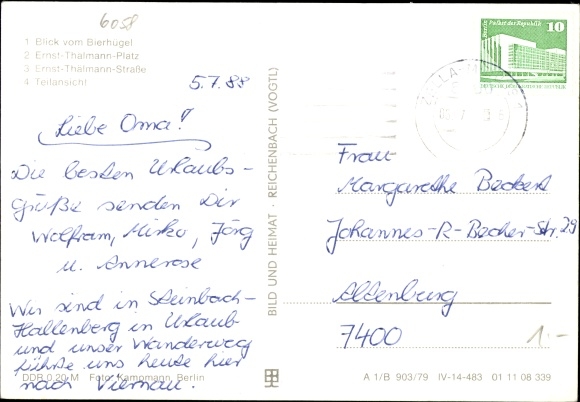 6058
1 Blick vom Bierhügel
2 Ernst-Thälmann-Platz
3 Ernst-Thälmann-Straße
4 Teilansicht
5.7.88
Liebe Oma!
Die besten Urlaubs-
grüße senden Dir
Wolfram, Mirko, Jörg
u. Annerose
Wir sind in Steinbach-
Hallenberg in Urlaub
und unser Wanderweg
führte uns heute hier
nach Viernau.
DDR 0,20 M Foto: Kampmann, Berlin
BILD UND HEIMAT · REICHENBACH (VOGTL)
Berlin Palast der Republik
10
DEUTSCHE DEMOKRATISCHE REPUBLIK
Frau
Margarethe Beckert
Johannes-R-Becher-Str. 29
Altenburg
7400
1.-
A 1/B 903/79 IV-14-483 01 11 08 339